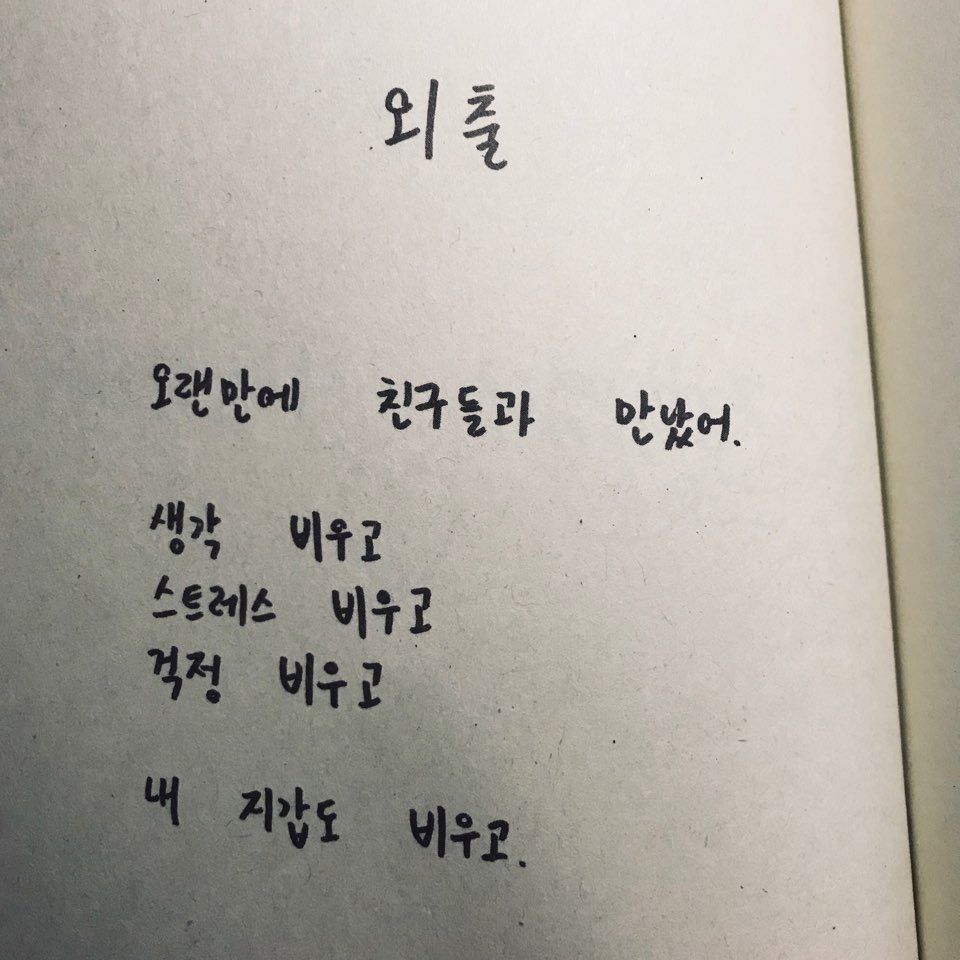 외출
오랜만에 친구들과 만났어.
생각 비우고
스트레스 비우고
걱정 비우고
내 지갑도 비우고.